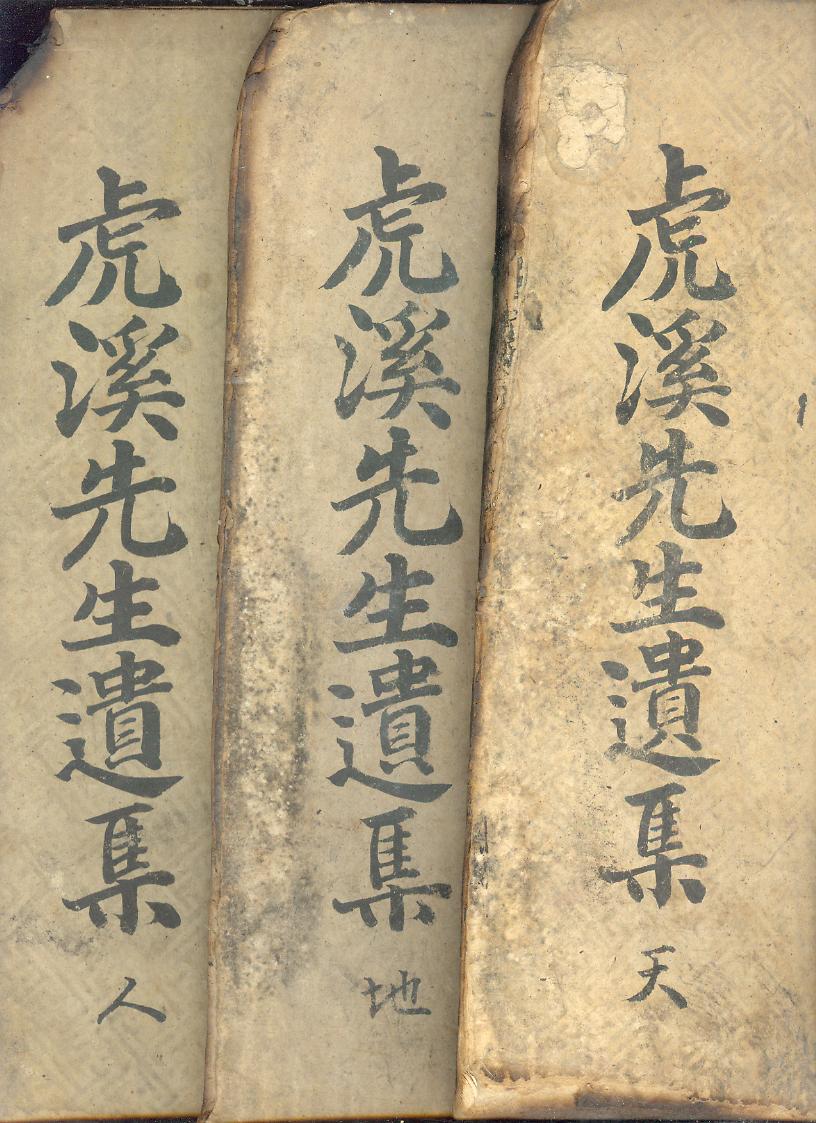 虎溪先生遺集
天
虎溪先生遺集
地
虎溪先生遺集
人